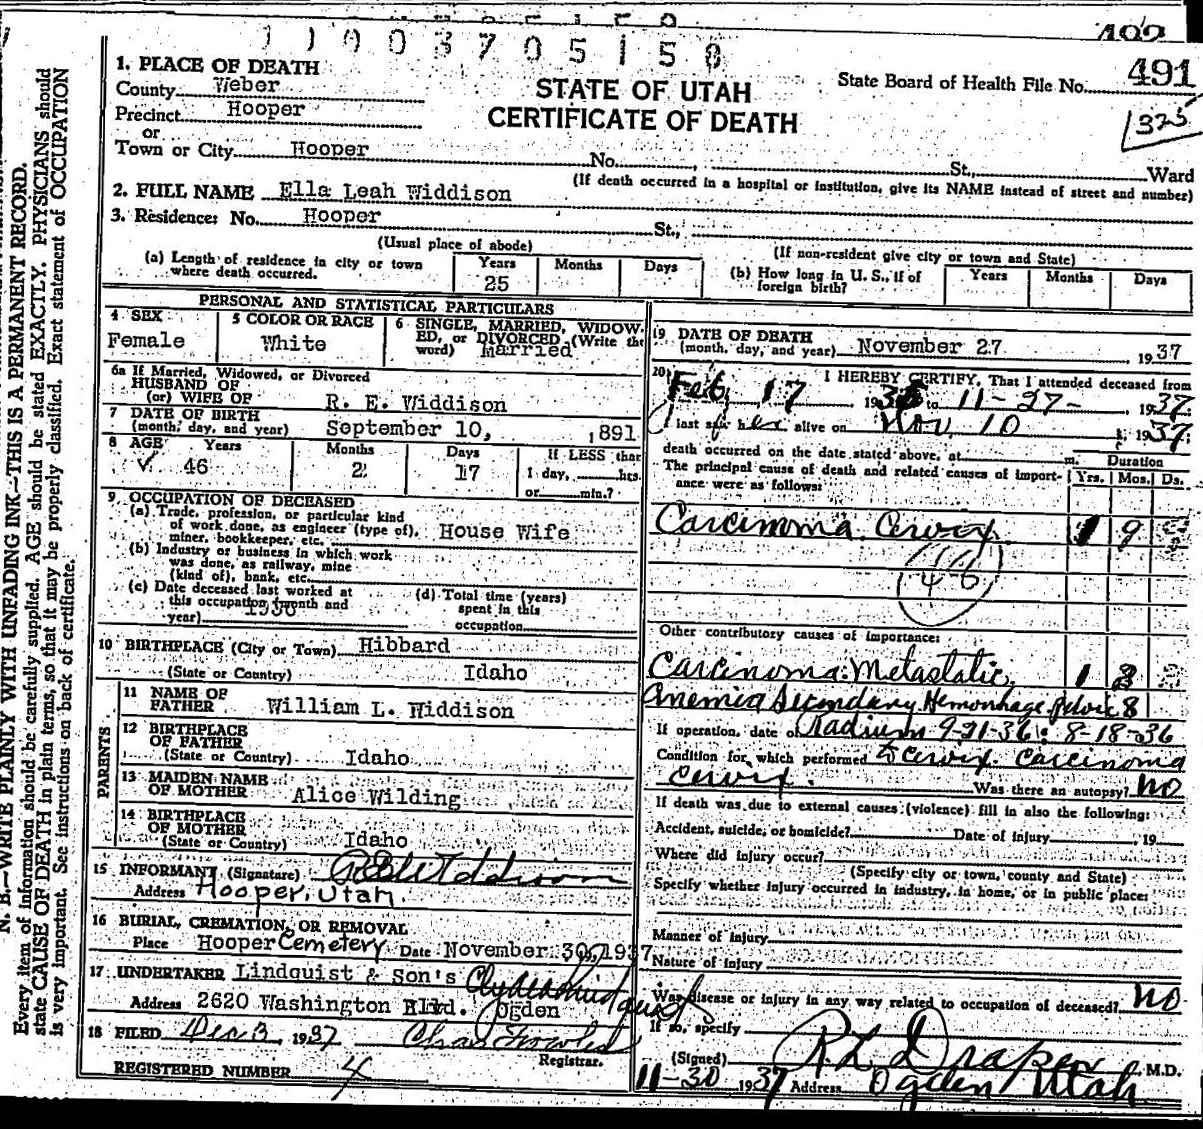 11003705150
492
1. PLACE OF DEATH
County Weber
Precinct Hooper
or
Town or City Hooper No. , St., Ward
STATE OF UTAH
CERTIFICATE OF DEATH
State Board of Health File No. 491
325
(If death occurred in a hospital or institution, give its NAME instead of street and number)
2. FULL NAME Ella Leah Widdison
3. Residence: No. Hooper St.,
(Usual place of abode) (If non-resident give city or town and State)
(a) Length of residence in city or town where death occurred. Years 25 Months Days
(b) How long in U. S., if of foreign birth? Years Months Days
PERSONAL AND STATISTICAL PARTICULARS
4 SEX Female
5 COLOR OR RACE White
6 SINGLE, MARRIED, WIDOWED, or DIVORCED (Write the word) Married
6a If Married, Widowed, or Divorced
HUSBAND OF
(or) WIFE OF R. E. Widdison
7 DATE OF BIRTH
(month, day, and year) September 10, 1891
8 AGE Years 46 Months 2 Days 17 If LESS than 1 day, hrs. or min.?
9 OCCUPATION OF DECEASED
(a) Trade, profession, or particular kind
of work done, as engineer (type of),
miner, bookkeeper, etc. House Wife
(b) Industry or business in which work
was done, as railway, mine
(kind of), bank, etc.
(c) Date deceased last worked at
this occupation (month and
year) 1936
(d) Total time (years)
spent in this
occupation
10 BIRTHPLACE (City or Town) Hibbard
(State or Country) Idaho
PARENTS
11 NAME OF
FATHER William L. Widdison
12 BIRTHPLACE
OF FATHER
(State or Country) Idaho
13 MAIDEN NAME
OF MOTHER Alice Wilding
14 BIRTHPLACE
OF MOTHER
(State or Country) Idaho
15 INFORMANT (Signature) R E Widdison
Address Hooper, Utah
16 BURIAL, CREMATION, OR REMOVAL
Place Hooper Cemetery Date November 30, 1937
17 UNDERTAKER Lindquist & Son's Clyde Lindquist
Address 2620 Washington Blvd. Ogden
18 FILED Dec 3, 1937 Chas Fowles
Registrar.
REGISTERED NUMBER 4
19 DATE OF DEATH
(month, day, and year) November 27 1937
20 I HEREBY CERTIFY, That I attended deceased from
Feb 17 193 to 11-27-, 1937.
I last saw her alive on Nov 10, 1937.
death occurred on the date stated above, at m.
The principal cause of death and related causes of importance were as follows:
Duration
Yrs. Mos. Ds.
Carcinoma Cervix 1 9
46
Other contributory causes of importance:
Carcinoma Metastatic 1 3
Anemia Secondary. Hemorrhage pelvic 8
If operation, date of Radium 9-21-36 : 8-18-36
Condition for which performed to cervix. Carcinoma
cervix. Was there an autopsy? No
If death was due to external causes (violence) fill in also the following:
Accident, suicide, or homicide? Date of injury , 19
Where did injury occur?
(Specify city or town, county and State)
Specify whether injury occurred in industry, in home, or in public place:
Manner of injury
Nature of injury
Was disease or injury in any way related to occupation of deceased? No
If so, specify
(Signed) R. L. Draper, M.D.
11-30 1937 Address Ogden Utah
N. B.—WRITE PLAINLY WITH UNFADING INK—THIS IS A PERMANENT RECORD.
Every item of information should be carefully supplied. AGE should be stated EXACTLY. PHYSICIANS should
state CAUSE OF DEATH in plain terms, so that it may be properly classified. Exact statement of OCCUPATION
is very important. See instructions on back of certificate.